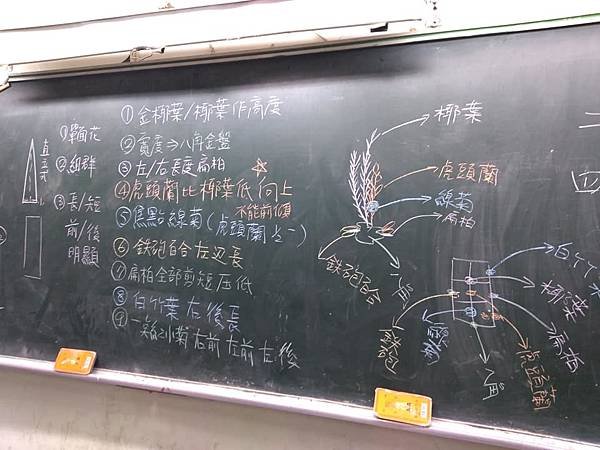 直立式
①單面花
②組群
③長/短
前/後
明顯
①金椰葉/椰葉作高度
②寬度⇒八角金盤
③左/右長度扁柏
④虎頭蘭比椰葉低向上
不能前傾
⑤焦點綠菊(虎頭蘭
⑥鉄砲百合左边長
⑦扁柏全部剪短压低
⑧白竹葉右後長
⑨小菊右前左前左後
椰葉
虎頭蘭
綠菊
扁柏
鉄砲百合
八角
白竹
椰葉
扁柏
虎頭蘭
八角
綠菊
鉄砲
二
四